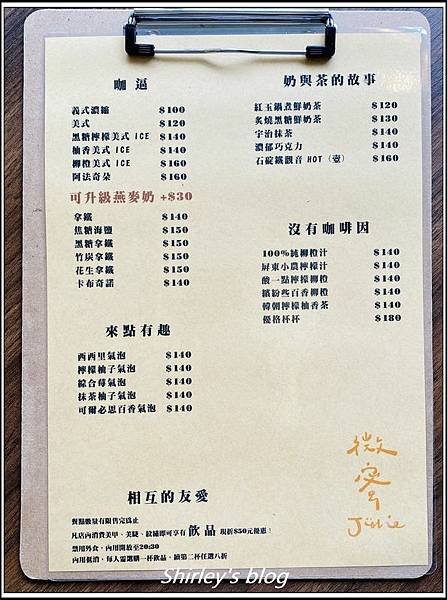 咖逼
義式濃縮 $100
美式 $120
黑糖檸檬美式 ICE $140
柚香美式 ICE $140
柳橙美式 ICE $160
阿法奇朵 $160
可升級燕麥奶 +$30
拿鐵 $140
焦糖海鹽 $150
黑糖拿鐵 $150
竹炭拿鐵 $150
花生拿鐵 $150
卡布奇諾 $140
來點有趣
西西里氣泡 $140
檸檬柚子氣泡 $140
綜合莓氣泡 $140
抹茶柚子氣泡 $140
可爾必思百香氣泡 $140
奶與茶的故事
紅玉鍋煮鮮奶茶 $120
炙燒黑糖鮮奶茶 $130
宇治抹茶 $140
濃郁巧克力 $140
石碇鐵觀音 HOT (壺) $160
沒有咖啡因
100%純柳橙汁 $140
屏東小農檸檬汁 $140
酸一點檸檬柳橙 $140
繽紛些百香柳橙 $140
韓朝檸檬柚香茶 $140
優格杯杯 $180
相互的友愛
餐點數量有限售完為止
凡店內消費美甲、美睫、紋繡即可享有 飲品 現折$50元優惠!
禁用外食，內用開放至20:30
內用低消、每人需選購一杯飲品、續第二杯任選八折
微
Shirley's blog